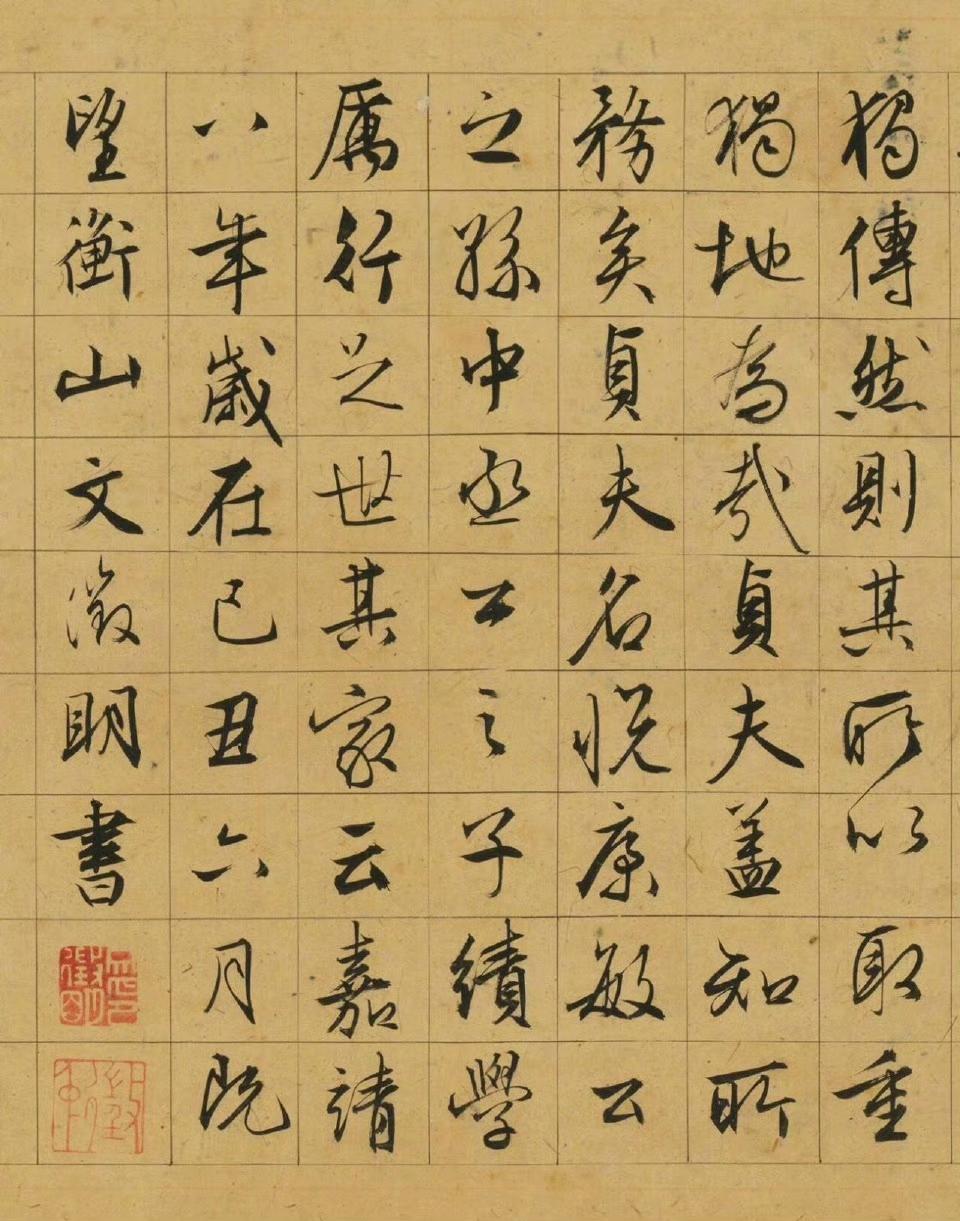 獨傳然則其所以取重
獨地為哉貞夫蓋知所
務矣貞夫名悅康敏公
之孫中丞公之子績學
厲行芝世其家云嘉靖
八年歲在己丑六月既
望衡山文徵明書